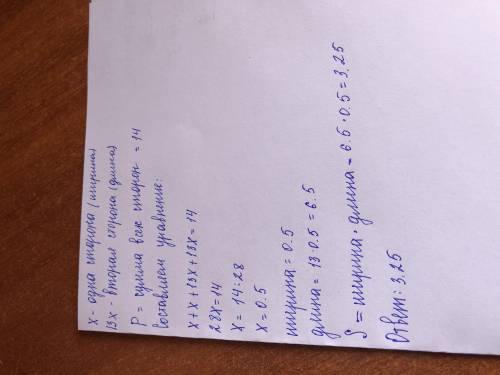 x - одна сторона (ширина)
13x - вторая сторона (длина)
P = сумма всех сторон = 14
Составляем уравнение:
x + x + 13x + 13x = 14
28x = 14
x = 14 : 28
x = 0.5
ширина = 0.5
длина = 13 · 0.5 = 6.5
S = ширина · длина = 6.5 · 0.5 = 3.25
Ответ: 3.25